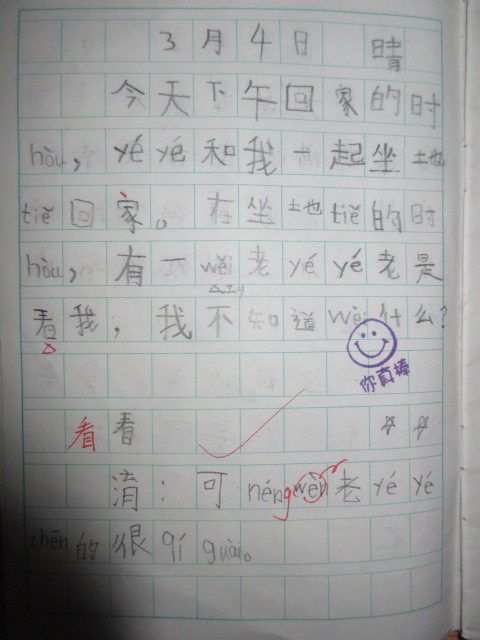 3月4日 晴
今天下午回家的时
hòu，yé yé 和我一起坐地
tiě 回家。在坐地 tiě 的时
hòu，有一 wěi 老 yé yé 老是
看我，我不知道 wèi 什么？
你真棒
看 看 ☆ ☆
消：可 néng wèn 老 yé yé
zhēn 的很 qí guài。